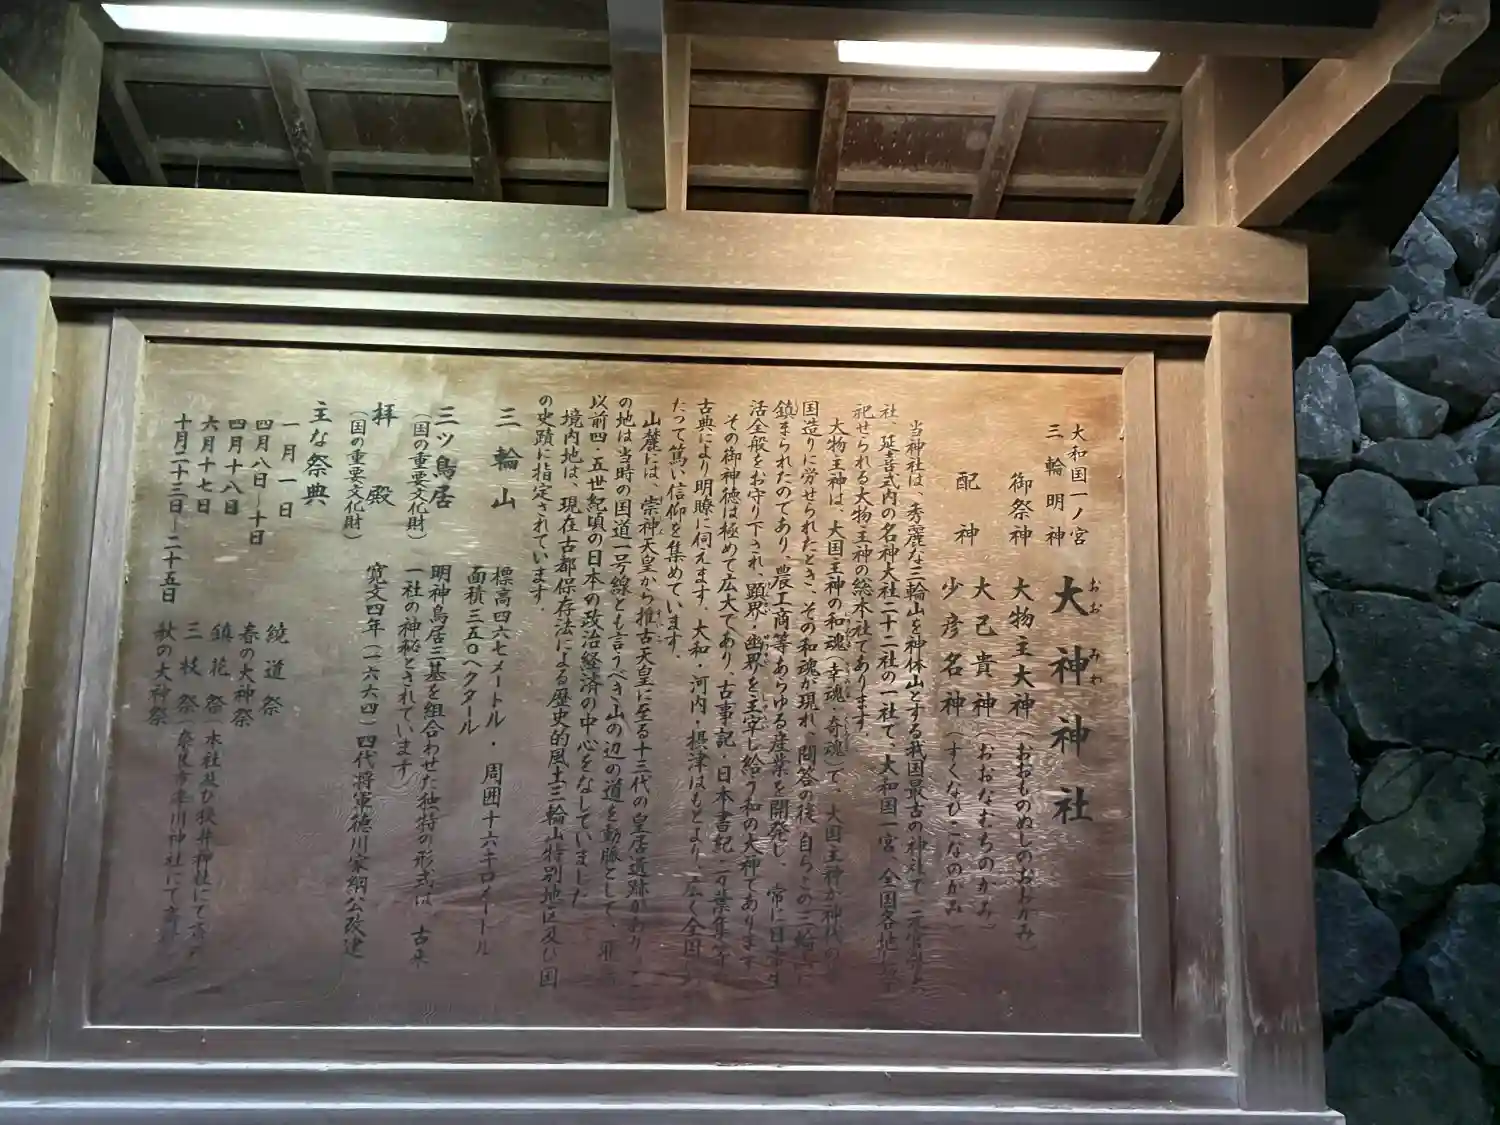 大和国一ノ宮
三輪明神
大神神社
おお みわ
御祭神 大物主大神（おおものぬしのおおかみ）
配神 大己貴神（おおなむちのかみ）
少彦名神（すくなひこなのかみ）
当神社は、秀麗な三輪山を神体山とする我国最古の神社で、
社、延喜式内の名神大社二十二社の一社で、大和国一宮、全国各地に
祀せられる大物主神の総本社であります。
大物主神は、大国主神の和魂（幸魂 奇魂）で、大国主神が神代の
国造りに労せられたとき、その和魂が現れ、問答の後、自らこの三輪山に
鎮まられたのであり、農工商等あらゆる産業を開発し、常に日常生
活全般をお守り下され、顕界・幽界を主宰し給う和の大神であります
その御神徳は極めて広大であり、古事記・日本書紀・万葉集等
古典により明瞭に伺えます。大和・河内・摂津はもとより、広く全国
たって篤い信仰を集めています。
山麓には、崇神天皇から推古天皇に至る十三代の皇居遺跡があり、こ
の地は当時の国道一号線とも言うべき山の辺の道を動脈として、
以前四・五世紀頃の日本の政治経済の中心をなしていました
境内地は、現在古都保存法による歴史的風土三輪山特別地区及び国
の史蹟に指定されています。
三輪山 標高四六七メートル・周囲十六キロメートル
面積三五〇ヘクタール
三ツ鳥居 明神鳥居三基を組合わせた独特の形式は、古来
（国の重要文化財） 一社の神秘とされています
拝殿 寛文四年（一六六四）四代将軍徳川家綱公改建
（国の重要文化財）
主な祭典
一月一日 繞道祭
四月八日―十日 春の大神祭
四月十八日 鎮花祭（本社及び狭井神社にて
六月十七日 三枝祭（奈良市率川神社にて
十月二十三日―二十五日 秋の大神祭